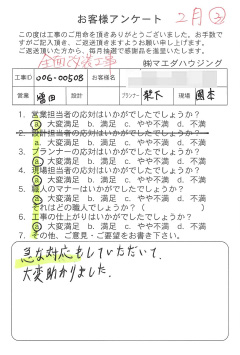 お客様アンケート
2月
この度は工事のご用命を頂きありがとうございました。お手数で
すがご記入頂き、ご返送頂きますようお願い申し上げます。
ご返送頂いた方から、毎月抽選で感謝品を進呈いたします。
全面改装工事
㈱マエダハウジング
工事ID 006-00508 お客様名
営業 増田 設計 プランナー 森下 現場 岡本
1. 営業担当者の応対はいかがでしたでしょうか?
ⓐ 大変満足 b. 満足 c. やや不満 d. 不満
2. 設計担当者の応対はいかがでしたでしょうか?
a. 大変満足 b. 満足 c. やや不満 d. 不満
3. プランナーの応対はいかがでしたでしょうか?
ⓐ 大変満足 b. 満足 c. やや不満 d. 不満
4. 現場担当者の応対はいかがでしたでしょうか?
ⓐ 大変満足 b. 満足 c. やや不満 d. 不満
5. 職人のマナーはいかがでしたでしょうか?
ⓐ 大変満足 b. 満足 c. やや不満 d. 不満
それはどの職人でしょうか?( )
6. 工事の仕上がりはいかがでしたでしょうか?
ⓐ 大変満足 b. 満足 c. やや不満 d. 不満
7. その他、ご意見・ご要望をお書き下さい。
急な対応もしていただいて、
大変助かりました。